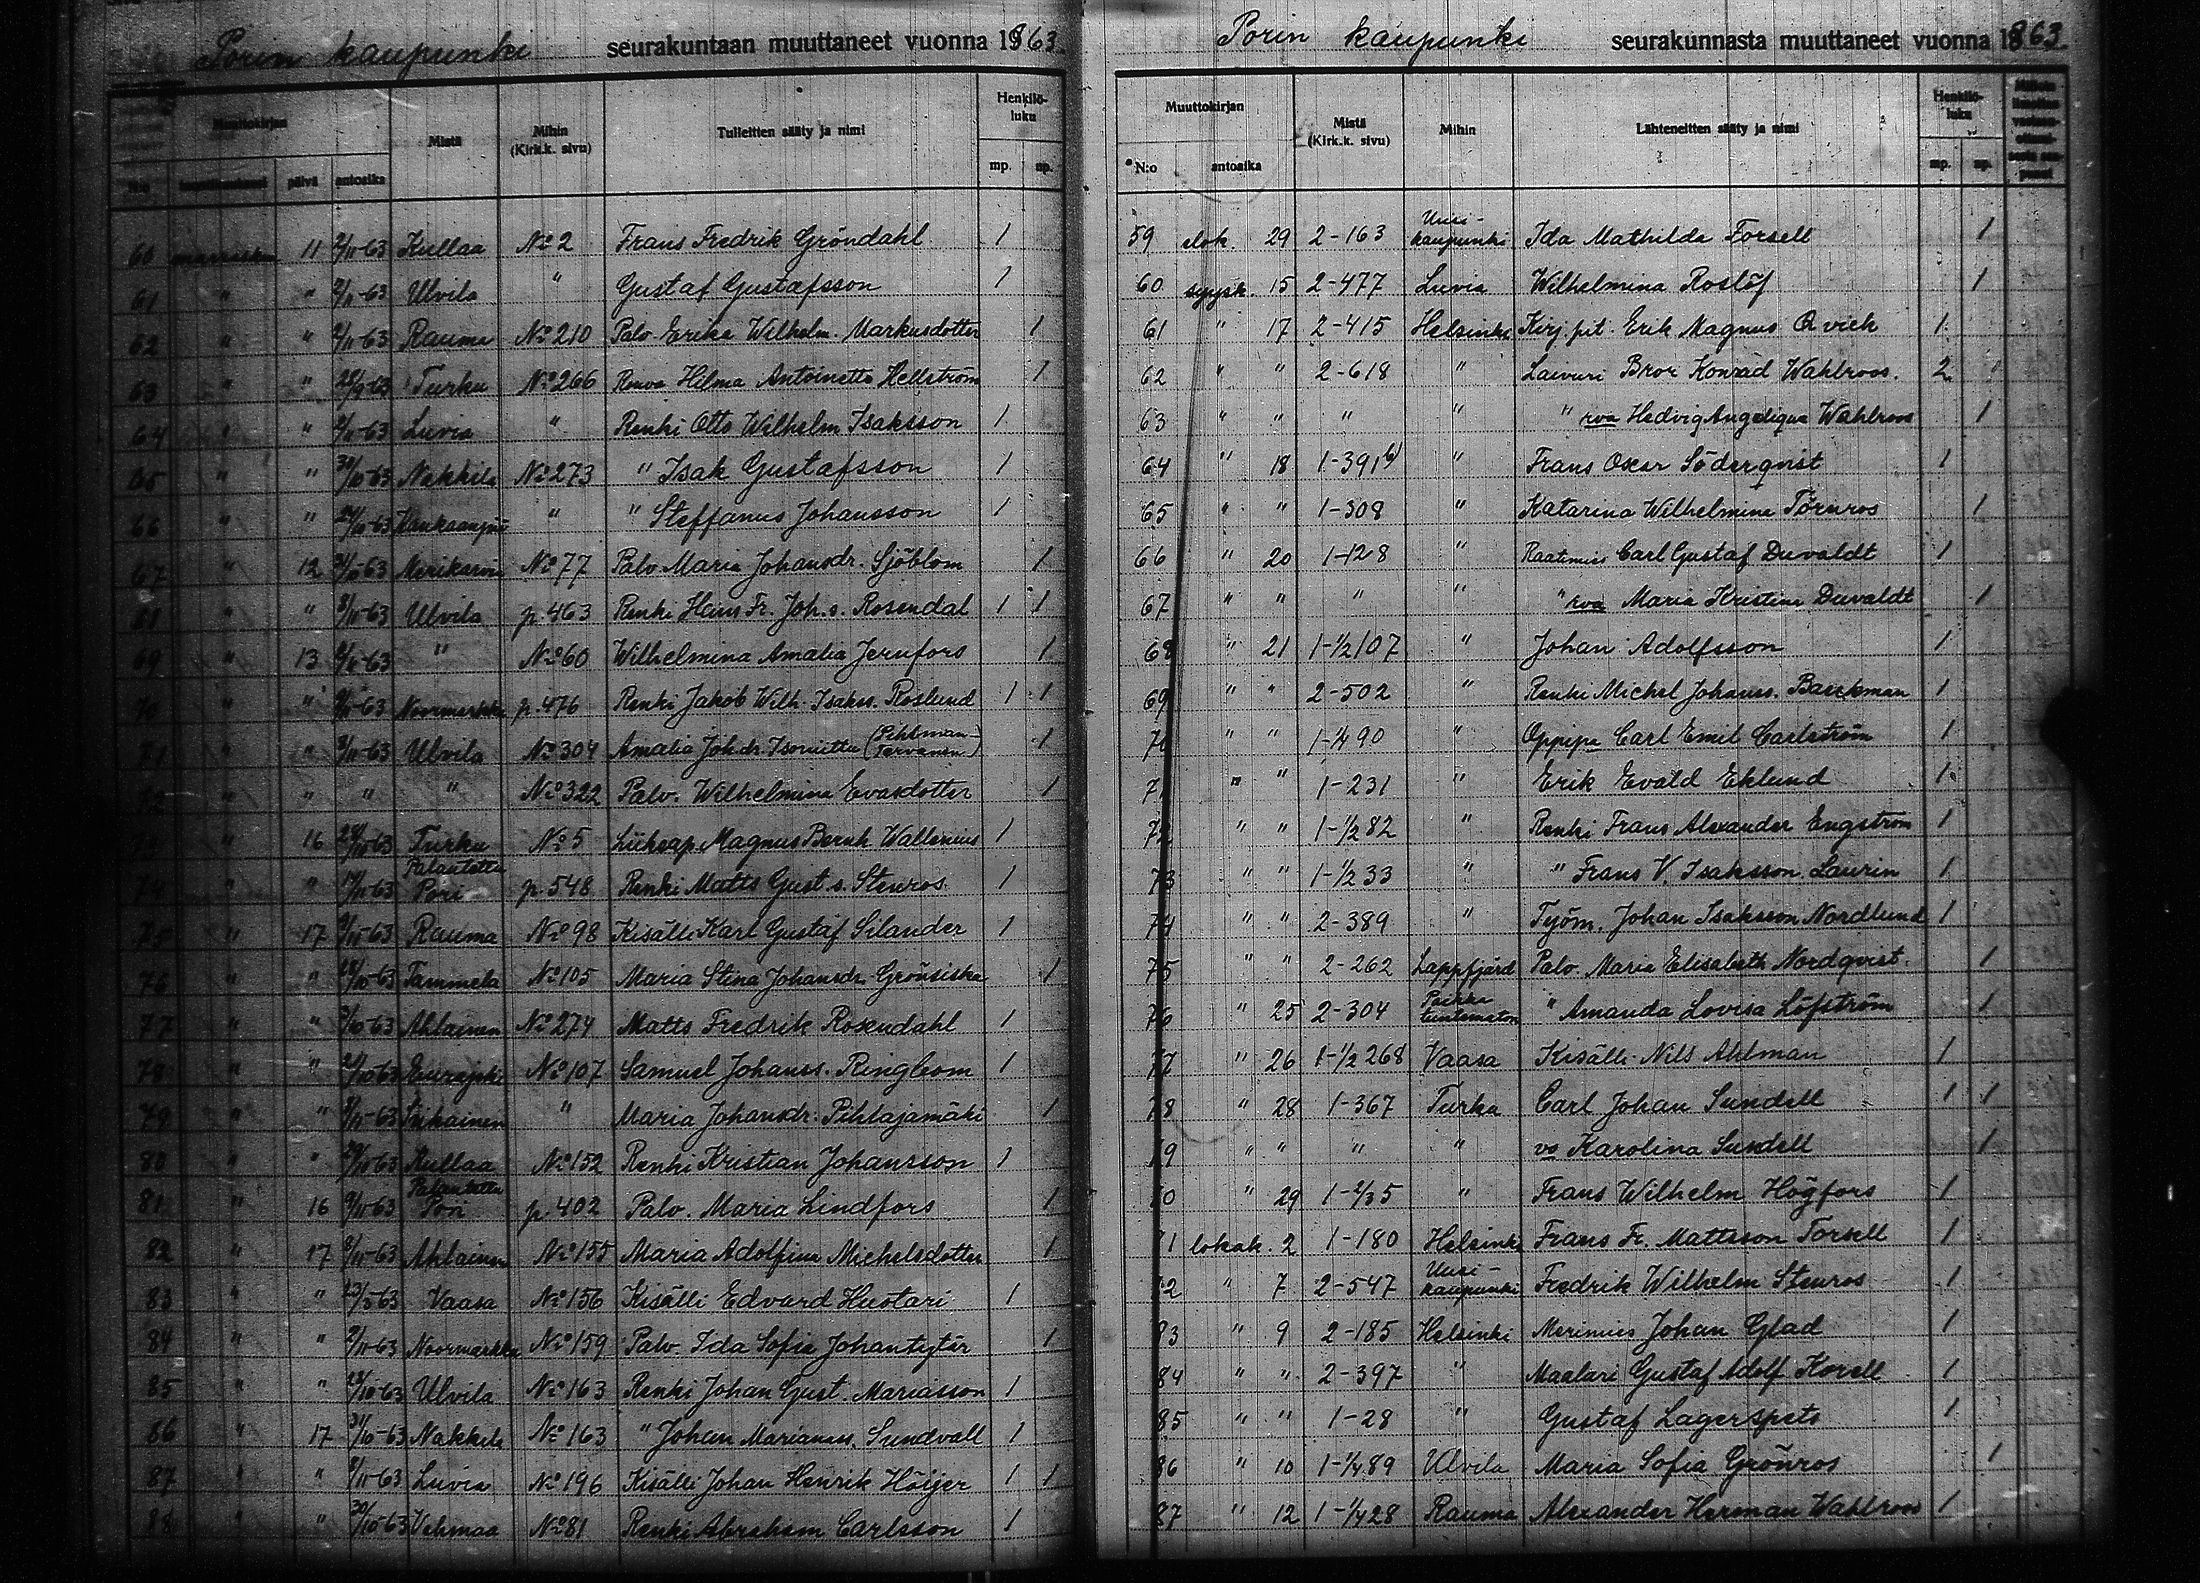 Porin kaupunki seurakuntaan muuttaneet vuonna 1863.
Muuttokirjan Mistä Mihin (Kirk.k. sivu) Tulleitten sääty ja nimi Henkilö-luku
N:o päivä antoaika mp. np.
60 marrask. 11 2/11-63 Kullaa No 2 Frans Fredrik Gröndahl 1
61 " " 2/11-63 Ulvila " Gustaf Gustafsson 1
62 " " 2/11-63 Rauma No 210 Palv. Erika Wilhelm. Markusdotter 1
63 " " Turku No 266 Rouva Hilma Antoinette Hellström 1
64 " " 2/11-63 Luvia " Renki Otto Wilhelm Isaksson 1
65 " " 30/10-63 Nakkila No 273 " Isak Gustafsson 1
66 " " Kankaanpää " " Steffanus Johansson 1
67 " 12 Merikarvia No 77 Palv. Maria Johansdr. Sjöblom 1
" " 8/11-63 Ulvila p. 463 Renki Hans Fr. Joh. s. Rosendal 1 1
69 " 13 " No 60 Wilhelmina Amalia Jernfors 1
70 " " Noormarkku p. 476 Renki Jakob Wilh. Isakss. Roslund 1 1
71 " " Ulvila No 304 Amalia Joh.dr. Isoniittu (Pihlman-Tervonen) 1
" " " " No 322 Palv. Wilhelmina Evasdotter 1
" 16 Turku No 5 Liikeap. Magnus Bernh. Wallenius 1
74 " " Palautettu Pori p. 548 Renki Matts Gust. s. Stenros 1
75 " 17 9/11-63 Rauma No 98 Kisälli Karl Gustaf Silander 1
76 " " 28/10-63 Tammela No 105 Maria Stina Johansdr. Grönsiska 1
77 " " Ahlainen No 274 Matts Fredrik Rosendahl 1
78 " " Eurajoki No 107 Samuel Johanss. Ringbom 1
79 " " Siikainen " Maria Johansdr. Pihlajamäki 1
80 " " Kullaa No 152 Renki Kristian Johansson 1
81 " 16 9/11-63 Palautettu Pori p. 402 Palv. Maria Lindfors 1
82 " 17 8/11-63 Ahlainen No 155 Maria Adolfina Michelsdotter 1
83 " " 23/5-63 Vaasa No 156 Kisälli Edvard Hustari 1
84 " " 2/11-63 Noormarkku No 159 Palv. Ida Sofia Johantytär 1
85 " " Ulvila No 163 Renki Johan Gust. Mariasson 1
86 " 17 31/10-63 Nakkila No 163 " Johan Marianss. Sundvall 1
87 " " Luvia No 196 Kisälli Johan Henrik Höijer 1 1
88 " " 30/10-63 Vehmaa No 81 Renki Abraham Carlsson 1
Porin kaupunki seurakunnasta muuttaneet vuonna 1863.
Muuttokirjan Mistä (Kirk.k. sivu) Mihin Lähteneitten sääty ja nimi Henkilö-luku
N:o antoaika mp. np.
59 elok. 29 2-163 Uusi-kaupunki Ida Mathilda Forsell 1
60 syysk. 15 2-477 Luvia Wilhelmina Roslöf 1
61 " 17 2-415 Helsinki Kirj. pit. Erik Magnus Qvick 1
62 " " 2-618 " Laivuri Bror Konrad Wahlroos. 2
63 " " " " " rva Hedvig Angelique Wahlroos 1
64 " 18 1-391 b) " Frans Oscar Söderqvist 1
65 " " 1-308 " Katarina Wilhelmina Törnros 1
66 " 20 1-128 " Raatimies Carl Gustaf Duvaldt 1
67 " " " " " rva Maria Kristina Duvaldt 1
68 " 21 1-1/2 107 " Johan Adolfsson 1
69 " " 2-502 " Renki Michel Johanss. Backman 1
70 " " 1-1/4 90 " Oppipa Carl Emil Carlström 1
71 " " 1-231 " Erik Evald Eklund 1
72 " " 1-1/2 82 " Renki Frans Alexander Engström 1
73 " " 1-1/2 33 " " Frans V. Isaksson Laurin 1
74 " " 2-389 " Työm. Johan Isaksson Nordlund 1
75 " " 2-262 Lappfjärd Palv. Maria Elisabeth Nordqvist. 1
76 " 25 2-304 Paikka tuntematon " Amanda Lovisa Löfström 1
77 " 26 1-1/2 268 Vaasa Kisälli Nils Ahlman 1
78 " 28 1-367 Turku Carl Johan Sundell 1 1
79 " " " " vo Karolina Sundell 1
80 " 29 1-2/3 5 " Frans Wilhelm Högfors 1
81 lokak. 2 1-180 Helsinki Frans Fr. Mattsson Forsell 1
82 " 7 2-547 Uusi-kaupunki Fredrik Wilhelm Stenros 1
83 " 9 2-185 Helsinki Merimies Johan Glad 1
84 " " 2-397 " Maalari Gustaf Adolf Korell 1
85 " " 1-28 " Gustaf Lagerspets 1
86 " 10 1-1/4 89 Ulvila Maria Sofia Grönros 1
87 " 12 1-1/4 28 Rauma Alexander Herman Wahlroos 1